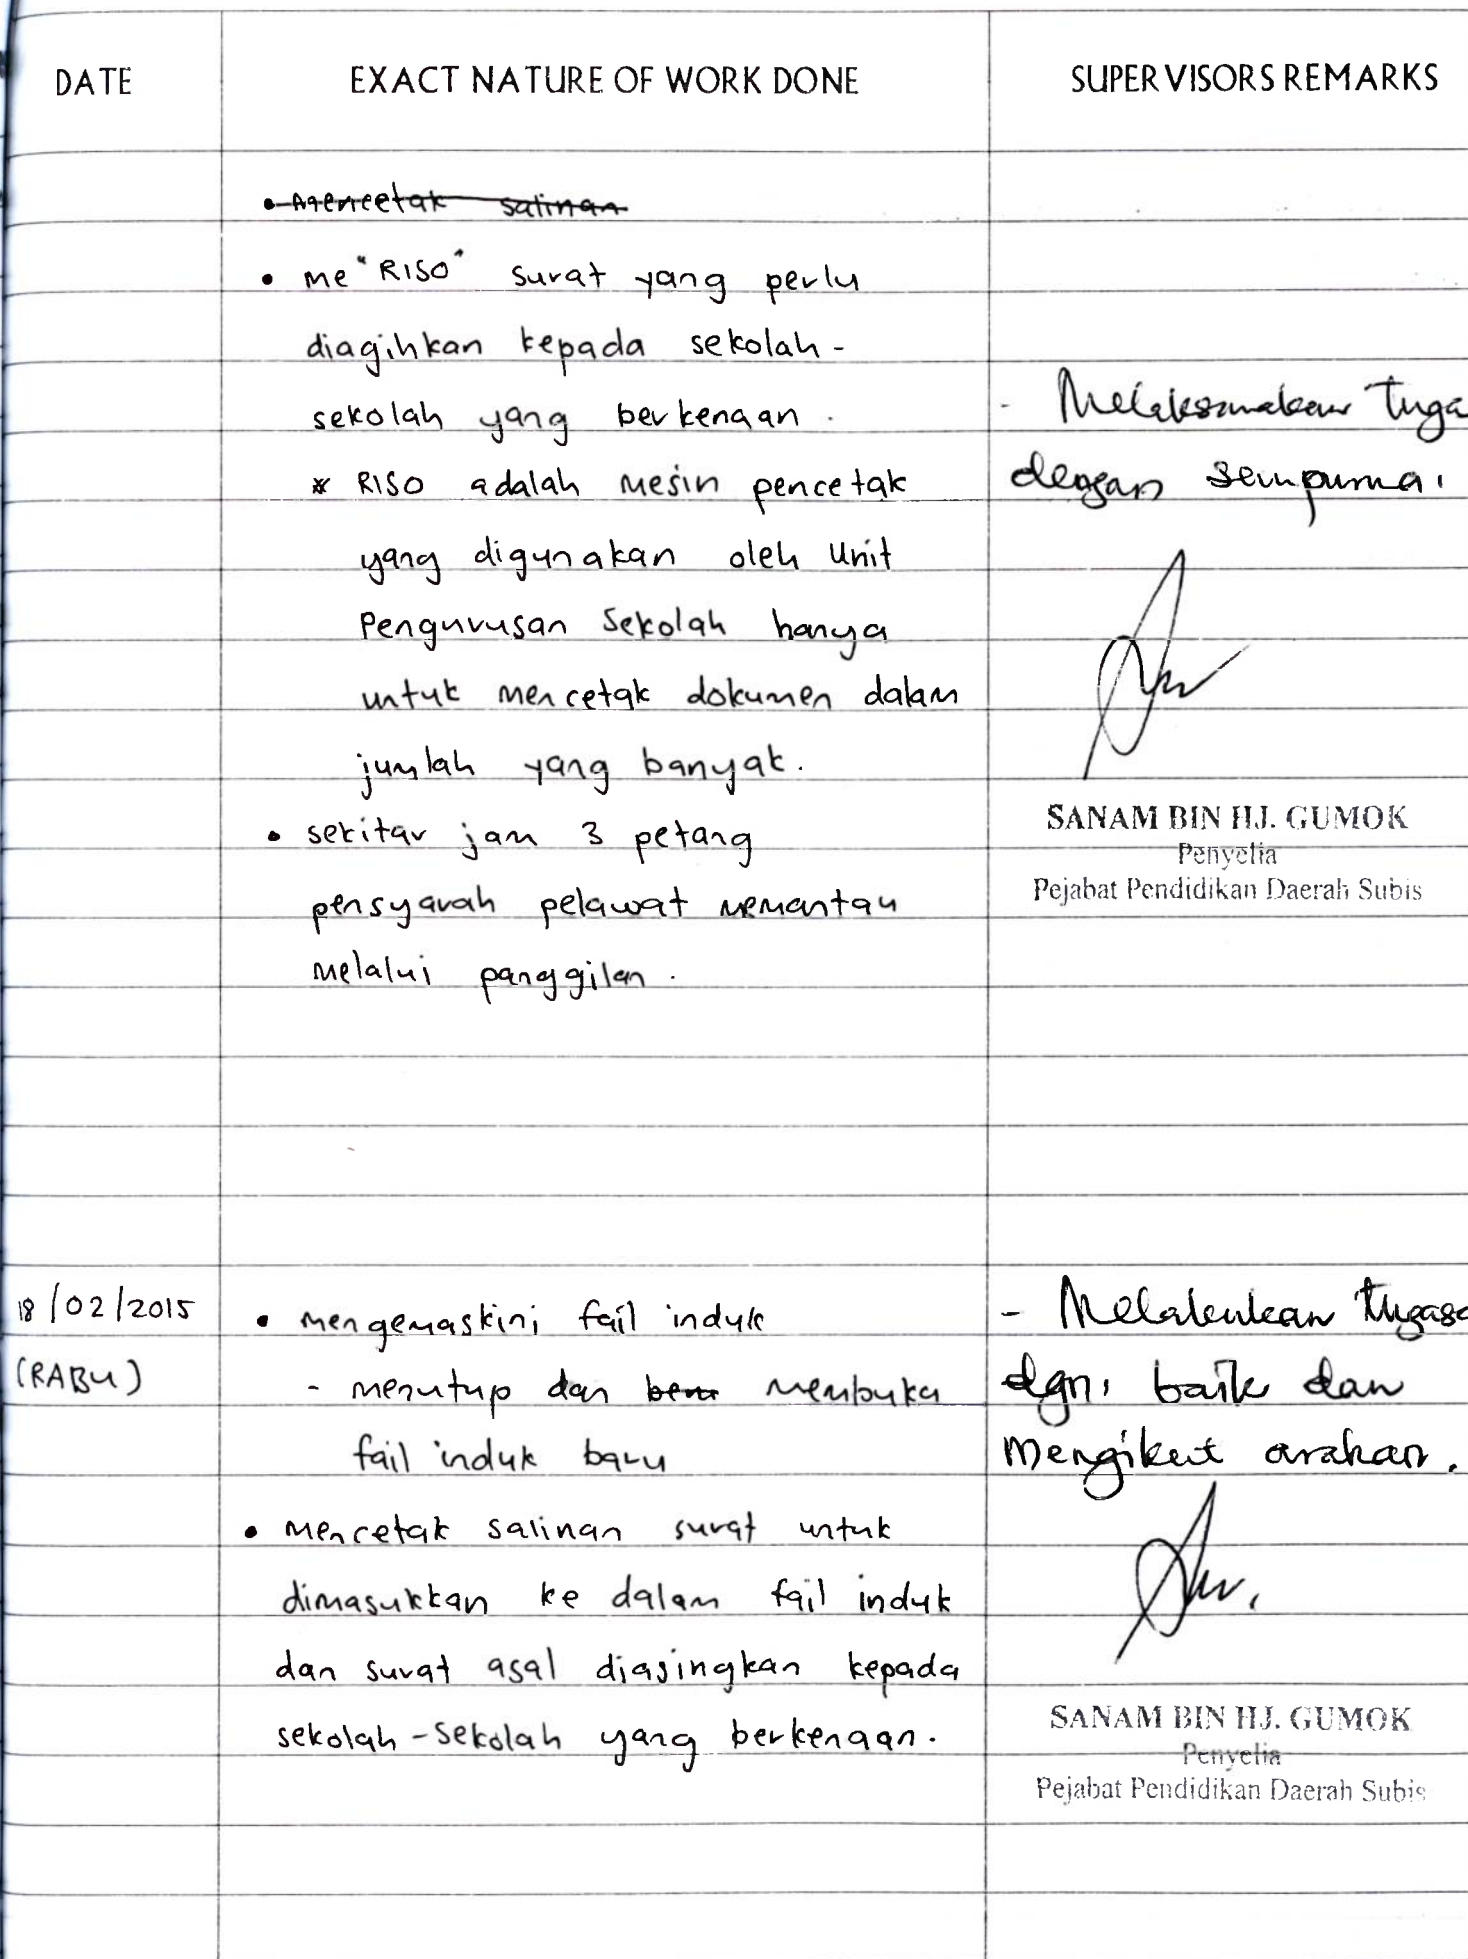 DATE EXACT NATURE OF WORK DONE SUPERVISORS REMARKS
• Mencetak salinan
• me "RISO" surat yang perlu
diagihkan kepada sekolah-
sekolah yang berkenaan.
* RISO adalah mesin pencetak
yang digunakan oleh Unit
Pengurusan Sekolah hanya
untuk mencetak dokumen dalam
jumlah yang banyak.
• sekitar jam 3 petang
pensyarah pelawat memantau
melalui panggilan.
- Melaksanakan tuga
dengan sempurna.
SANAM BIN HJ. GUMOK
Penyelia
Pejabat Pendidikan Daerah Subis
18/02/2015
(RABU)
• mengemaskini fail induk
- menutup dan membuka
fail induk baru
• mencetak salinan surat untuk
dimasukkan ke dalam fail induk
dan surat asal diasingkan kepada
sekolah-sekolah yang berkenaan.
- Melakukan tugasa
dgn. baik dan
mengikut arahan.
SANAM BIN HJ. GUMOK
Penyelia
Pejabat Pendidikan Daerah Subis